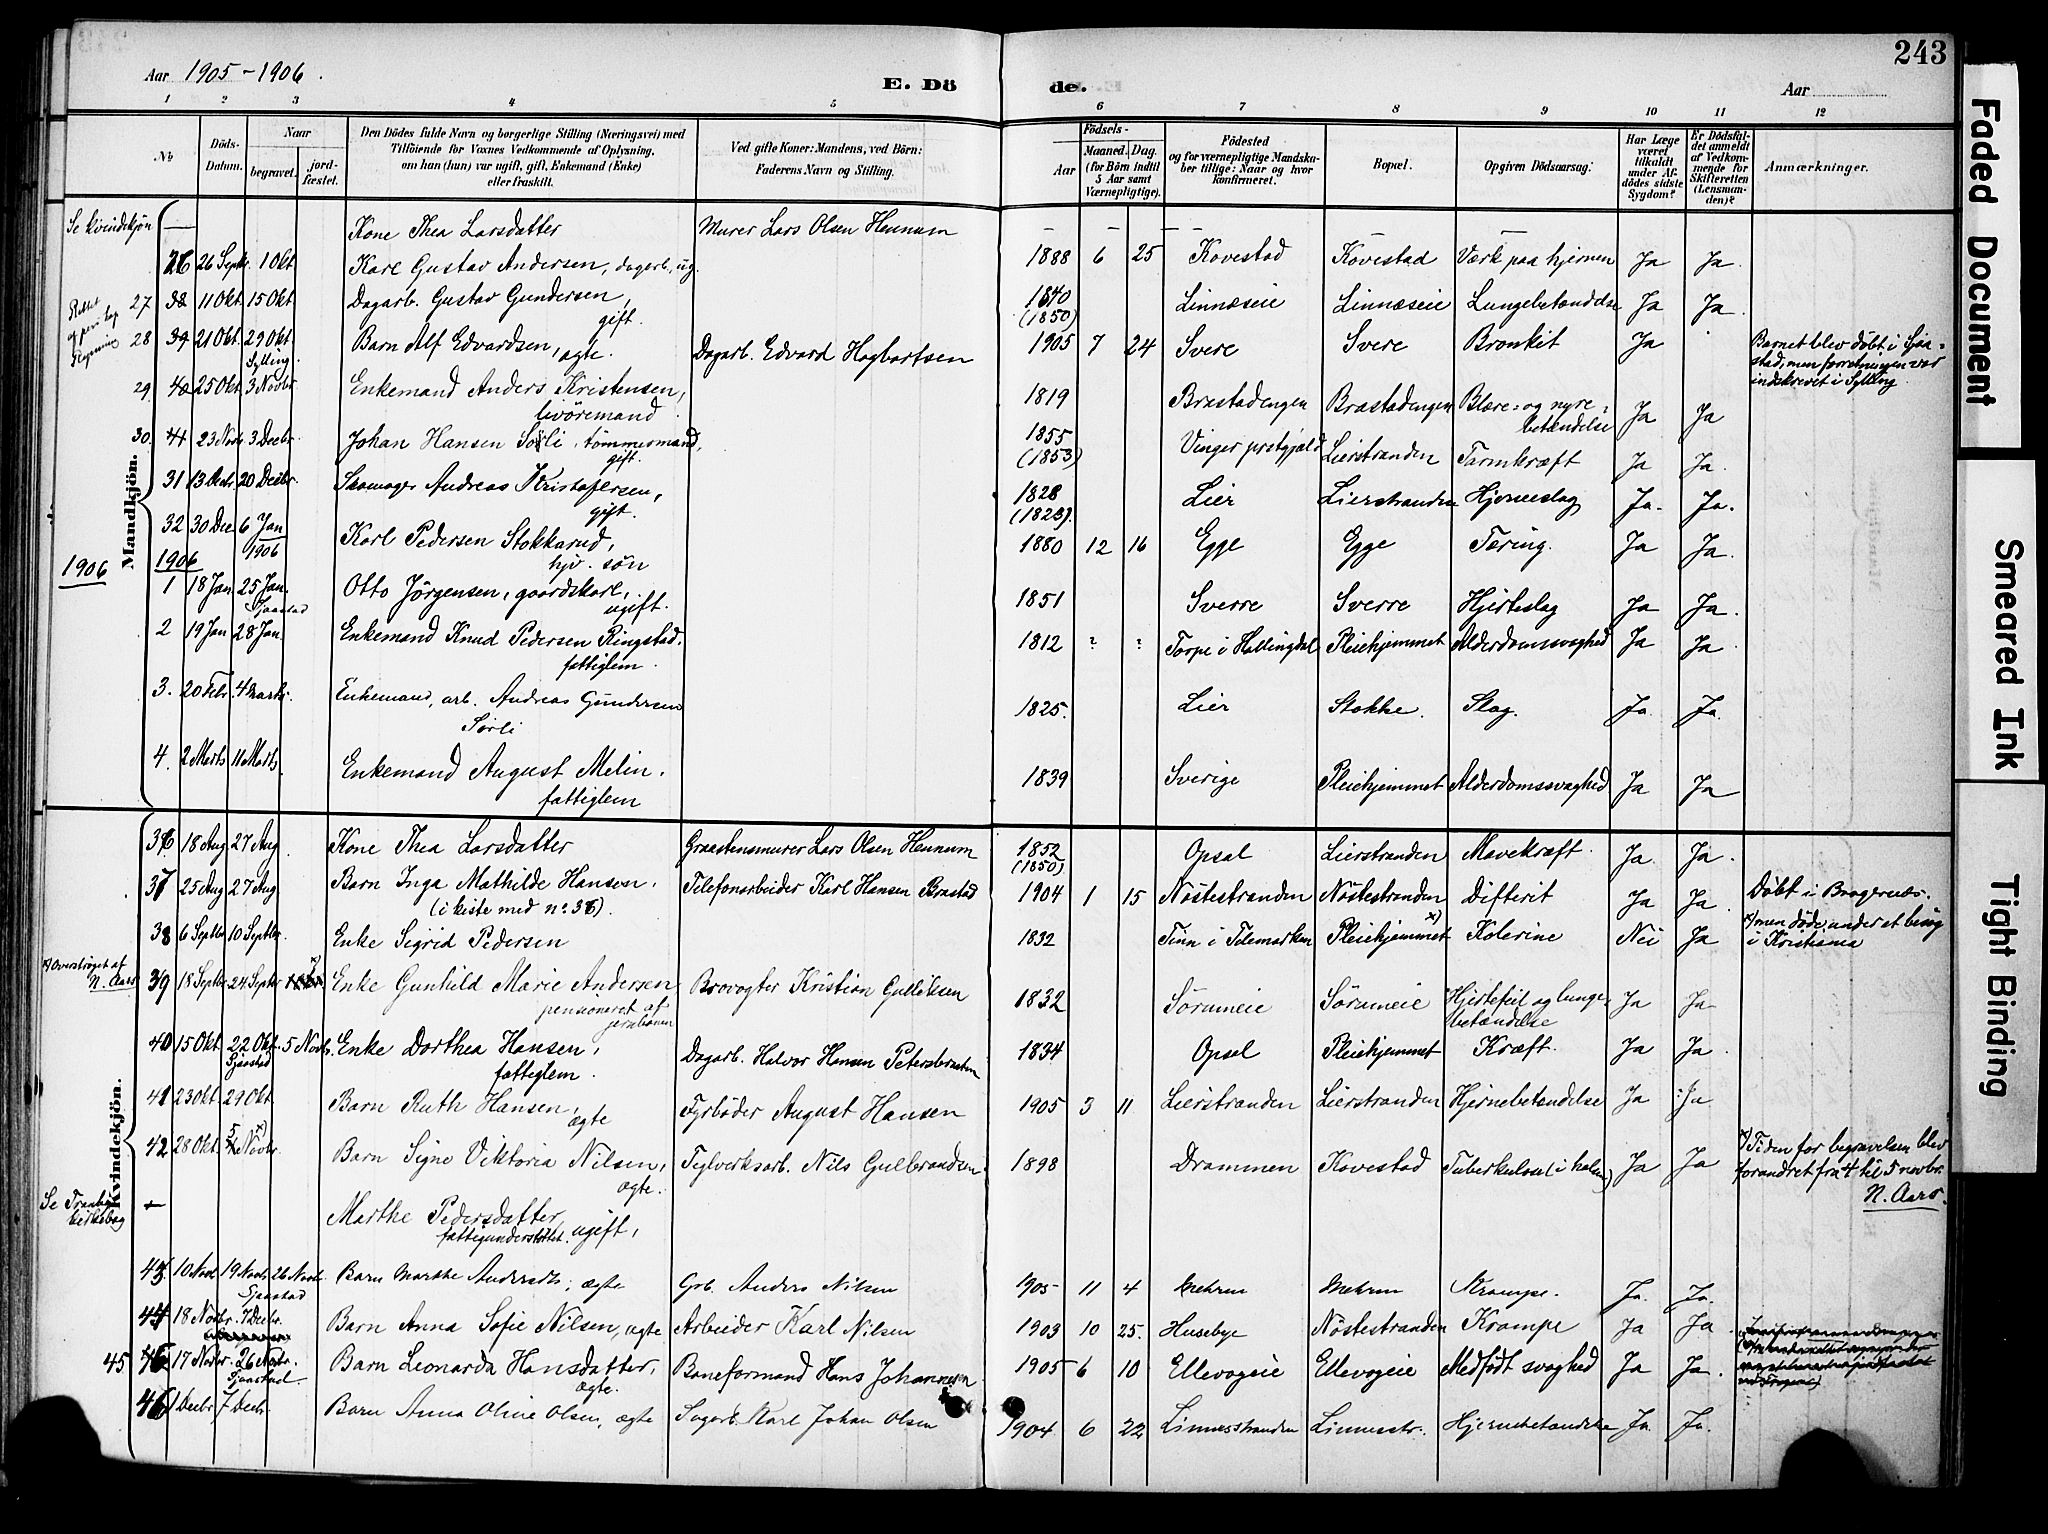 243
Aar 1905-1906.
E. Dö
de.
Aar
1 2 3 4 5 6 7 8 9 10 11 12
No
Döds-Datum.
Naar
begravet.
jord-fæstet.
Den Dödes fulde Navn og borgerlige Stilling (Næringsvei) med
Tilföiende for Voxnes Vedkommende af Oplysning,
om han (hun) var ugift, gift, Enkemand (Enke)
eller fraskilt.
Ved gifte Koner: Mandens, ved Börn:
Faderens Navn og Stilling.
Födsels-
Aar
Maaned. Dag.
(for Börn indtil
5 Aar samt
Værnepligtige).
Födested
og for værnepligtige Mandska-
ber tillige: Naar og hvor
konfirmeret.
Bopæl.
Opgiven Dödsaarsag:
Har Læge
været
tilkaldt
under Af-
dödes sidste
Sygdom?
Er Dödsfal-
det anmeldt
af Vedkom-
mende for
Skifteretten
(Lensman-
den)?
Anmærkninger.
Mandkjön.
Se kvindekjön — Kone Thea Larsdatter Murer Lars Olsen Hennum — — — — —
26 26 Septr. 1 Okt Karl Gustav Andersen, dagarb., ug. 1888 6 25 Kovestad Kovestad Værk paa hjernen Ja Ja.
27 11 Okt 15 Okt Dagarb. Gustav Gundersen, gift. 1840 (1850) Linnæseie Linnæseie Lungebetændelse Ja Ja.
28 21 Okt. 29 Okt Sylling Barn Alf Edvardsen, ægte. Dagarb. Edvard Hagbartsen 1905 7 24 Svere Svere Bronkit Ja
Barnet blev døbt i Sjaa-
stad, men forretningen var
indskrevet i Sylling.
29 25 Okt. 3 Novbr Enkemand Anders Kristensen, livöremand. 1819 Brastadengen Brastadengen Blære- og nyre-betændelse Ja Ja
30. 23 Novb. 3 Decbr. Johan Hansen Sörli, tømmermand, gift. 1855 (1853) Vinger prstgjæld Lierstranden Tarmkræft Ja Ja.
31 13 Decbr. 20 Decbr. Skomager Andreas Kristofersen, gift. 1828 (1823). Lier Lierstranden Hjerneslag Ja. Ja.
32 30 Dec 6 Jan 1906 Karl Pedersen Stokkerud, hjv. søn 1880 12 16 Egge Egge Tæring. Ja Ja.
1906 1906
1 18 Jan 25 Jan. Sjaastad Otto Jörgensen, gaardskarl, ugift. 1851 Sverre Sverre Hjerteslag Ja Ja.
2 19 Jan 28 Jan. Enkemand Knud Pedersen Ringstad. fattiglem. 1812 ? ? Torpe i Hallingdal Pleiehjemmet Alderdomssvaghed Ja Ja.
3. 20 Febr. 4 marts. Enkemand, arb. Andreas Gundersen Sørli 1825. Lier Stokke. Slag. Ja. Ja.
4. 2 Marts 11 Marts. Enkemand August Melin. fattiglem 1839 Sverige Pleiehjemmet Alderdomssvaghed Ja Ja
Kvindekjön.
36 18 Aug 27 Aug Kone Thea Larsdatter Graastensmurer Lars Olsen Hennum 1852 (1850) Opsal Lierstranden Mavekræft. Ja. Ja.
37 25 Aug 27 Aug Barn Inga Mathilde Hansen. (i kiste med no. 36). Telefonarbeider Karl Hansen Brastad 1904 1 15 Nöstestranden Nöstestranden Difterit Ja Ja. Döbt i Bragernæs.
38 6 Septbr 10 Septbr. Enke Sigrid Pedersen 1832 Tinn i Telemarken Pleiehjemmet x) Kolerine Nei Ja
x) men döde under et besög
i Kristiania
x) Overstrøget af
N. Aars
39 18 Septbr 24 Septbr Enke Gunhild Marie Andersen pensioneret af jernbanen Brovogter Kristian Gulliksen 1832 Sörumeie Sörumeie Hjertefeil og lunge-betændelse Ja Ja
40 15 Okt 22 Okt. Sjaastad 5 Novb. Enke Dorthea Hansen, fattiglem. Dagarb. Halvor Hansen Petersbraaten 1834 Opsal Pleiehjemmet Kræft. Ja Ja.
41 23 Okt. 29 Okt Barn Ruth Hansen, ægte Fyrböder August Hansen 1905 3 11 Lierstranden Lierstranden Hjernebetændelse Ja Ja
42 28 Okt. 5 x) Novbr. Barn Signe Viktoria Nilsen, ægte. Teglverksarb. Nils Gulbrandsen. 1898 Drammen Kovestad Tuberkulose (i halsen) Ja Ja
x) Tiden for begravelsen blev
forandret fra 4 til 5 novbr.
N. Aars.
Se Tranby
kirkebog — Marthe Pedersdatter, fattigunderstöttet. ugift,
43 10 Novb 19 Novb. Sjaastad 26 Novb. Barn Marthe Andersdt., ægte Grb. Anders Nilsen 1905 11 4 Mehren Mehren Krampe. Ja. Ja.
44 18 Novbr. 7 Decbr. Barn Anna Sofie Nilsen, ægte Arbeider Karl Nilsen 1903 10 25. Husebye Nöstestranden Krampe Ja Ja.
45 17 Novbr. 26 Novbr. Sjaastad. Barn Leonarda Hansdatter, ægte. Baneformand Hans Johannesen 1905 6 10 Ellevogeie Ellevogeie Medfödt svaghed Ja Ja.
46 1 Decbr 7 Decbr. Barn Anna Oline Olsen, ægte Sagarb. Karl Johan Olsen 1904 6 22 Linnesstranden Linnesstr. Hjernebetændelse Ja. Ja.
Faded Document
Smeared Ink
Tight Binding